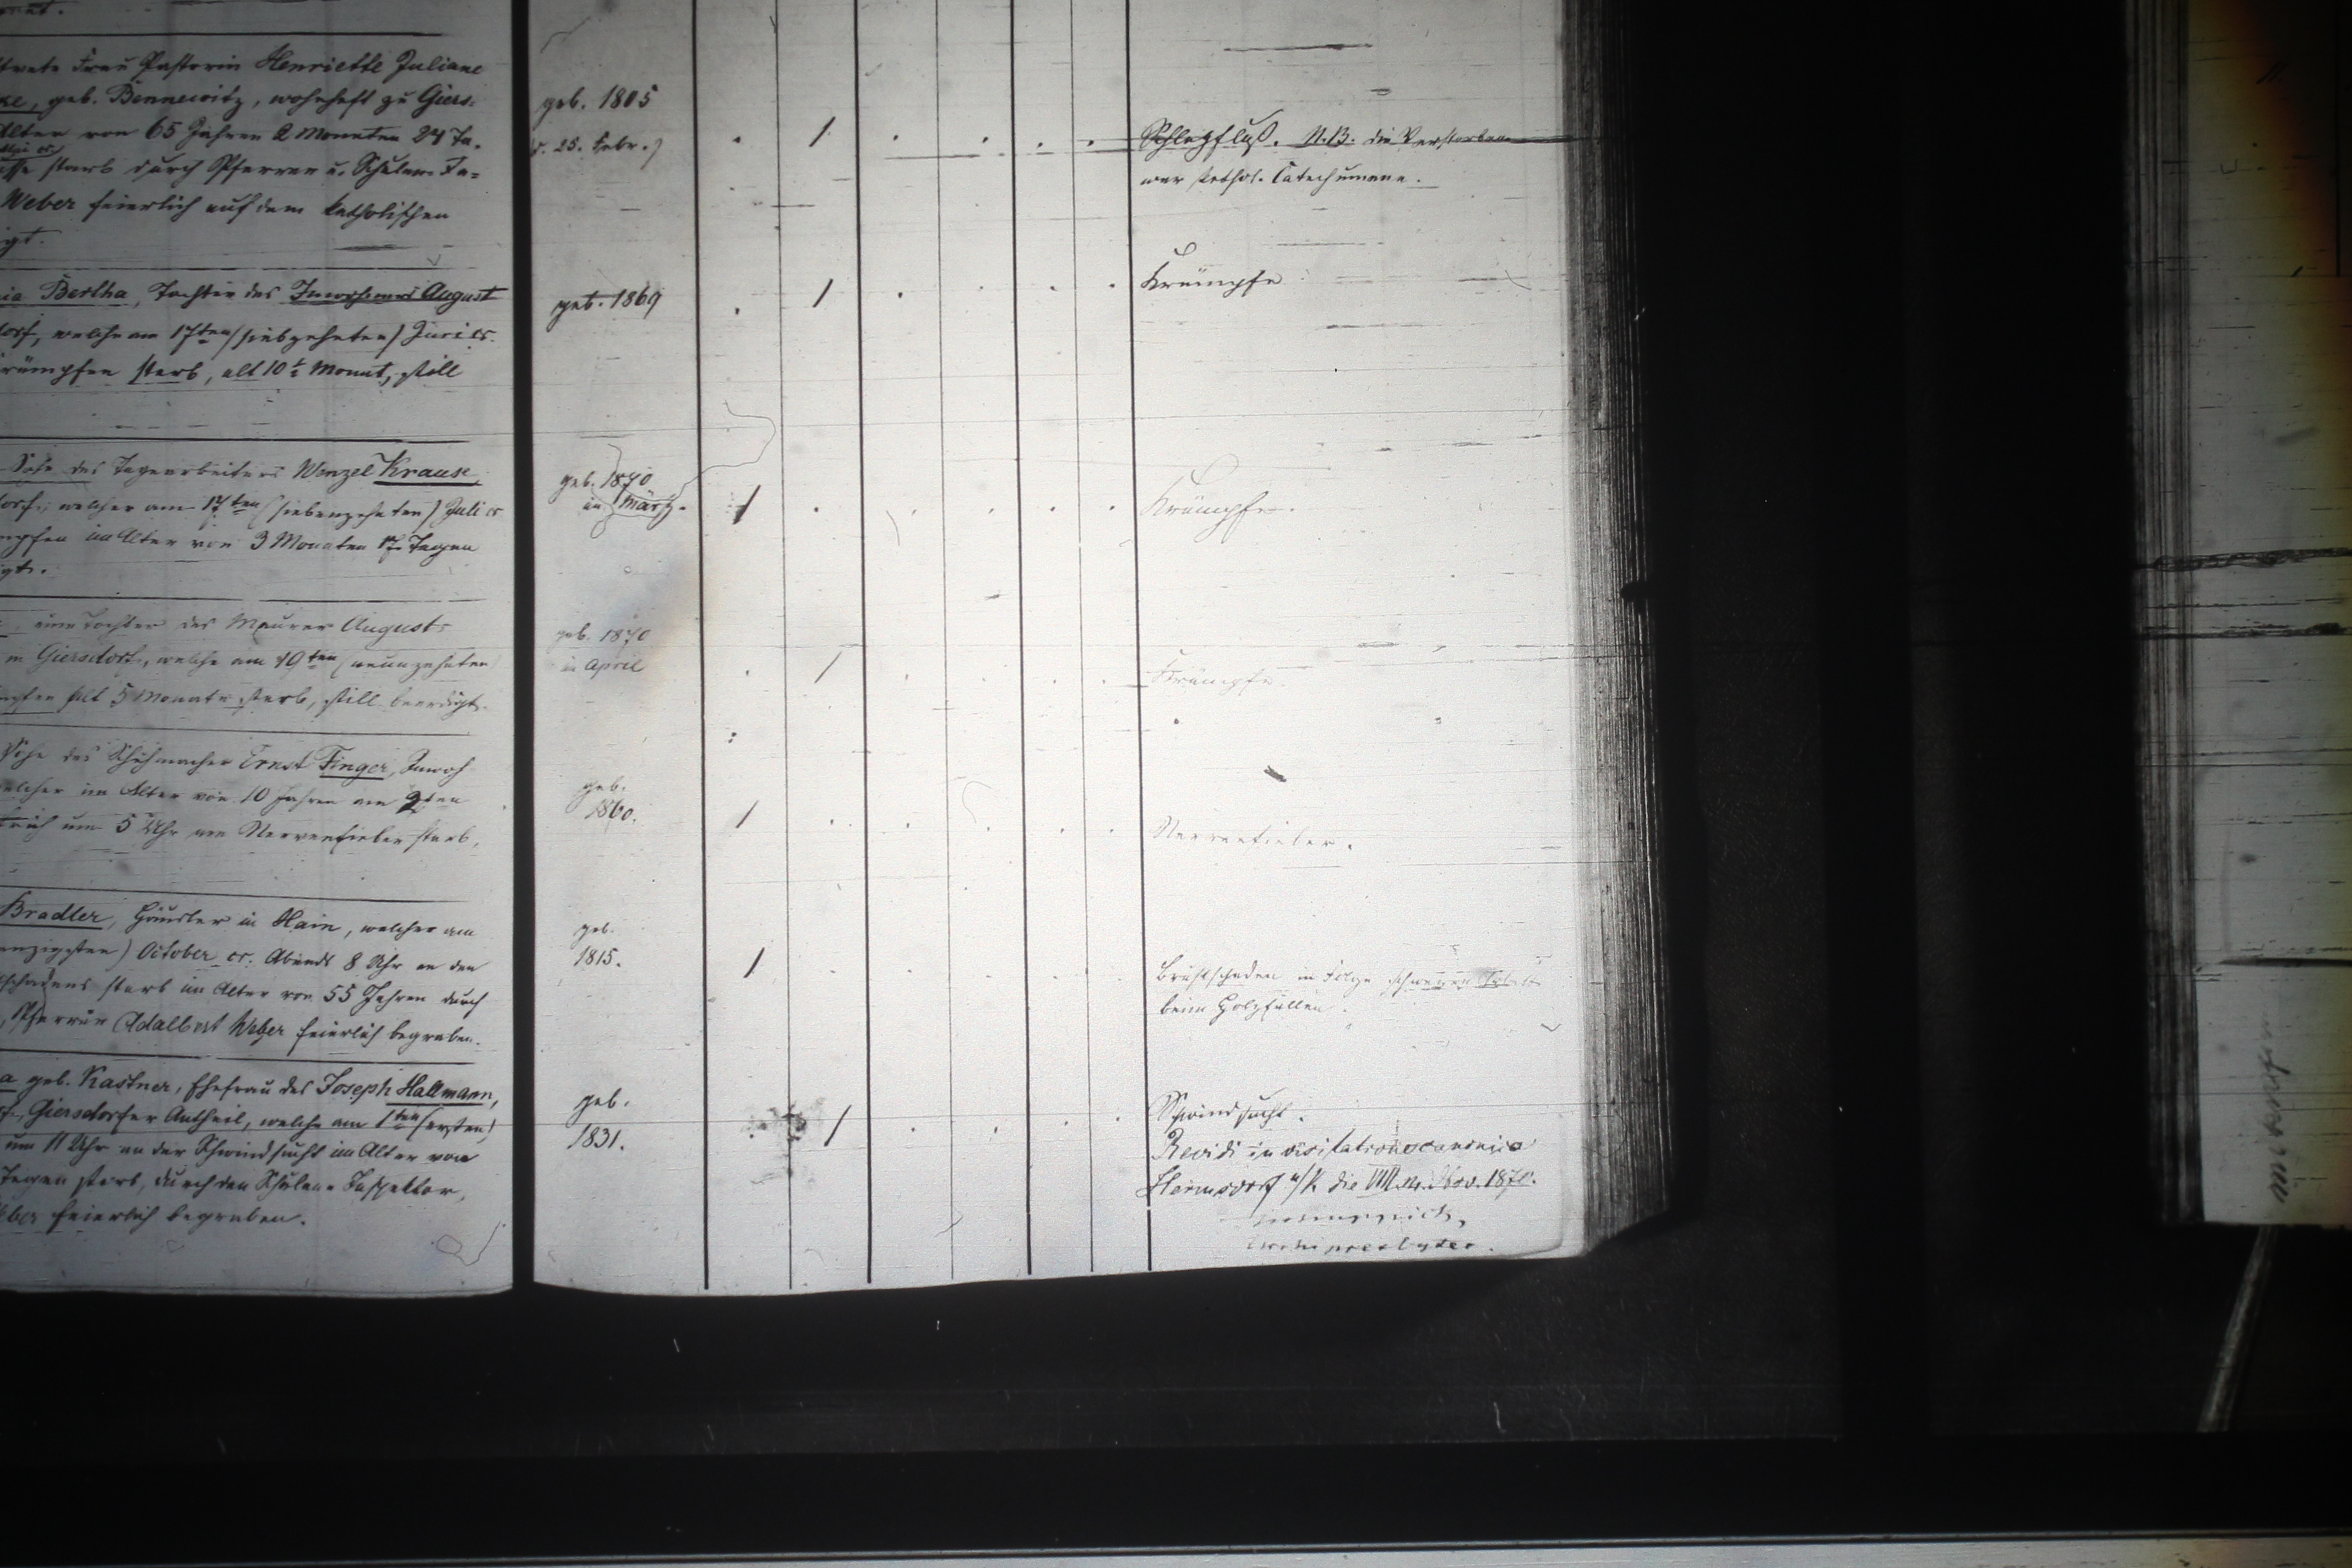 Frau Pastorin Henriette Juliane
geb. Bennewitz, wohnhaft zu Giers-
Alter von 65 Jahren 2 Monaten 24 Ta-
starb durch Pfarrer u. Schulen-In-
Weber feierlich auf dem katholischen
geb. 1805
25. Febr.)
Schlagfluß. N.B. die Verstorbene
war kathol. Catechumene.
Bertha, Tochter des Inwohners August
dorf, welche am 17ten (siebzehnten) Juni cr.
rämpfen starb, alt 10½ Monat, still
geb. 1869
Krämpfe
Sohn des Tagearbeiters Wenzel Krause,
dorf, welcher am 17ten (siebenzehnten) Juli cr
mpfen im Alter von 3 Monaten 17 Tagen
gt.
geb. 1870
im März.
Krämpfe.
eine Tochter des Maurer August
in Giersdorf, welche am 19ten (neunzehnten)
alt 5 Monate starb, still beerdigt.
geb. 1870
im April
Krämpfe.
Sohn des Schuhmacher Ernst Finger, Inwoh-
welcher im Alter von 10 Jahren am 9ten
früh um 5 Uhr am Nervenfieber starb,
geb.
1860.
Nervenfieber.
Bradler, Häusler in Hain, welcher am
anzigsten) October cr. Abends 8 Uhr an den
schadens starb im Alter von 55 Jahren durch
Pfarrer Adalbert Weber feierlich begraben.
geb.
1815.
Brustschaden in Folge
beim Holzfällen.
a geb. Kastner, Ehefrau des Joseph Hallmann,
Giersdorfer Antheil, welche am 1ten (ersten)
um 11 Uhr an der Schwindsucht im Alter von
Tagen starb, durch den Schulen-Inspektor,
ber feierlich begraben.
geb.
1831.
Schwindsucht.
Revidi in visitatione canonica
Hermsdorf u/K die Nov. 1870.
archipresbyter.